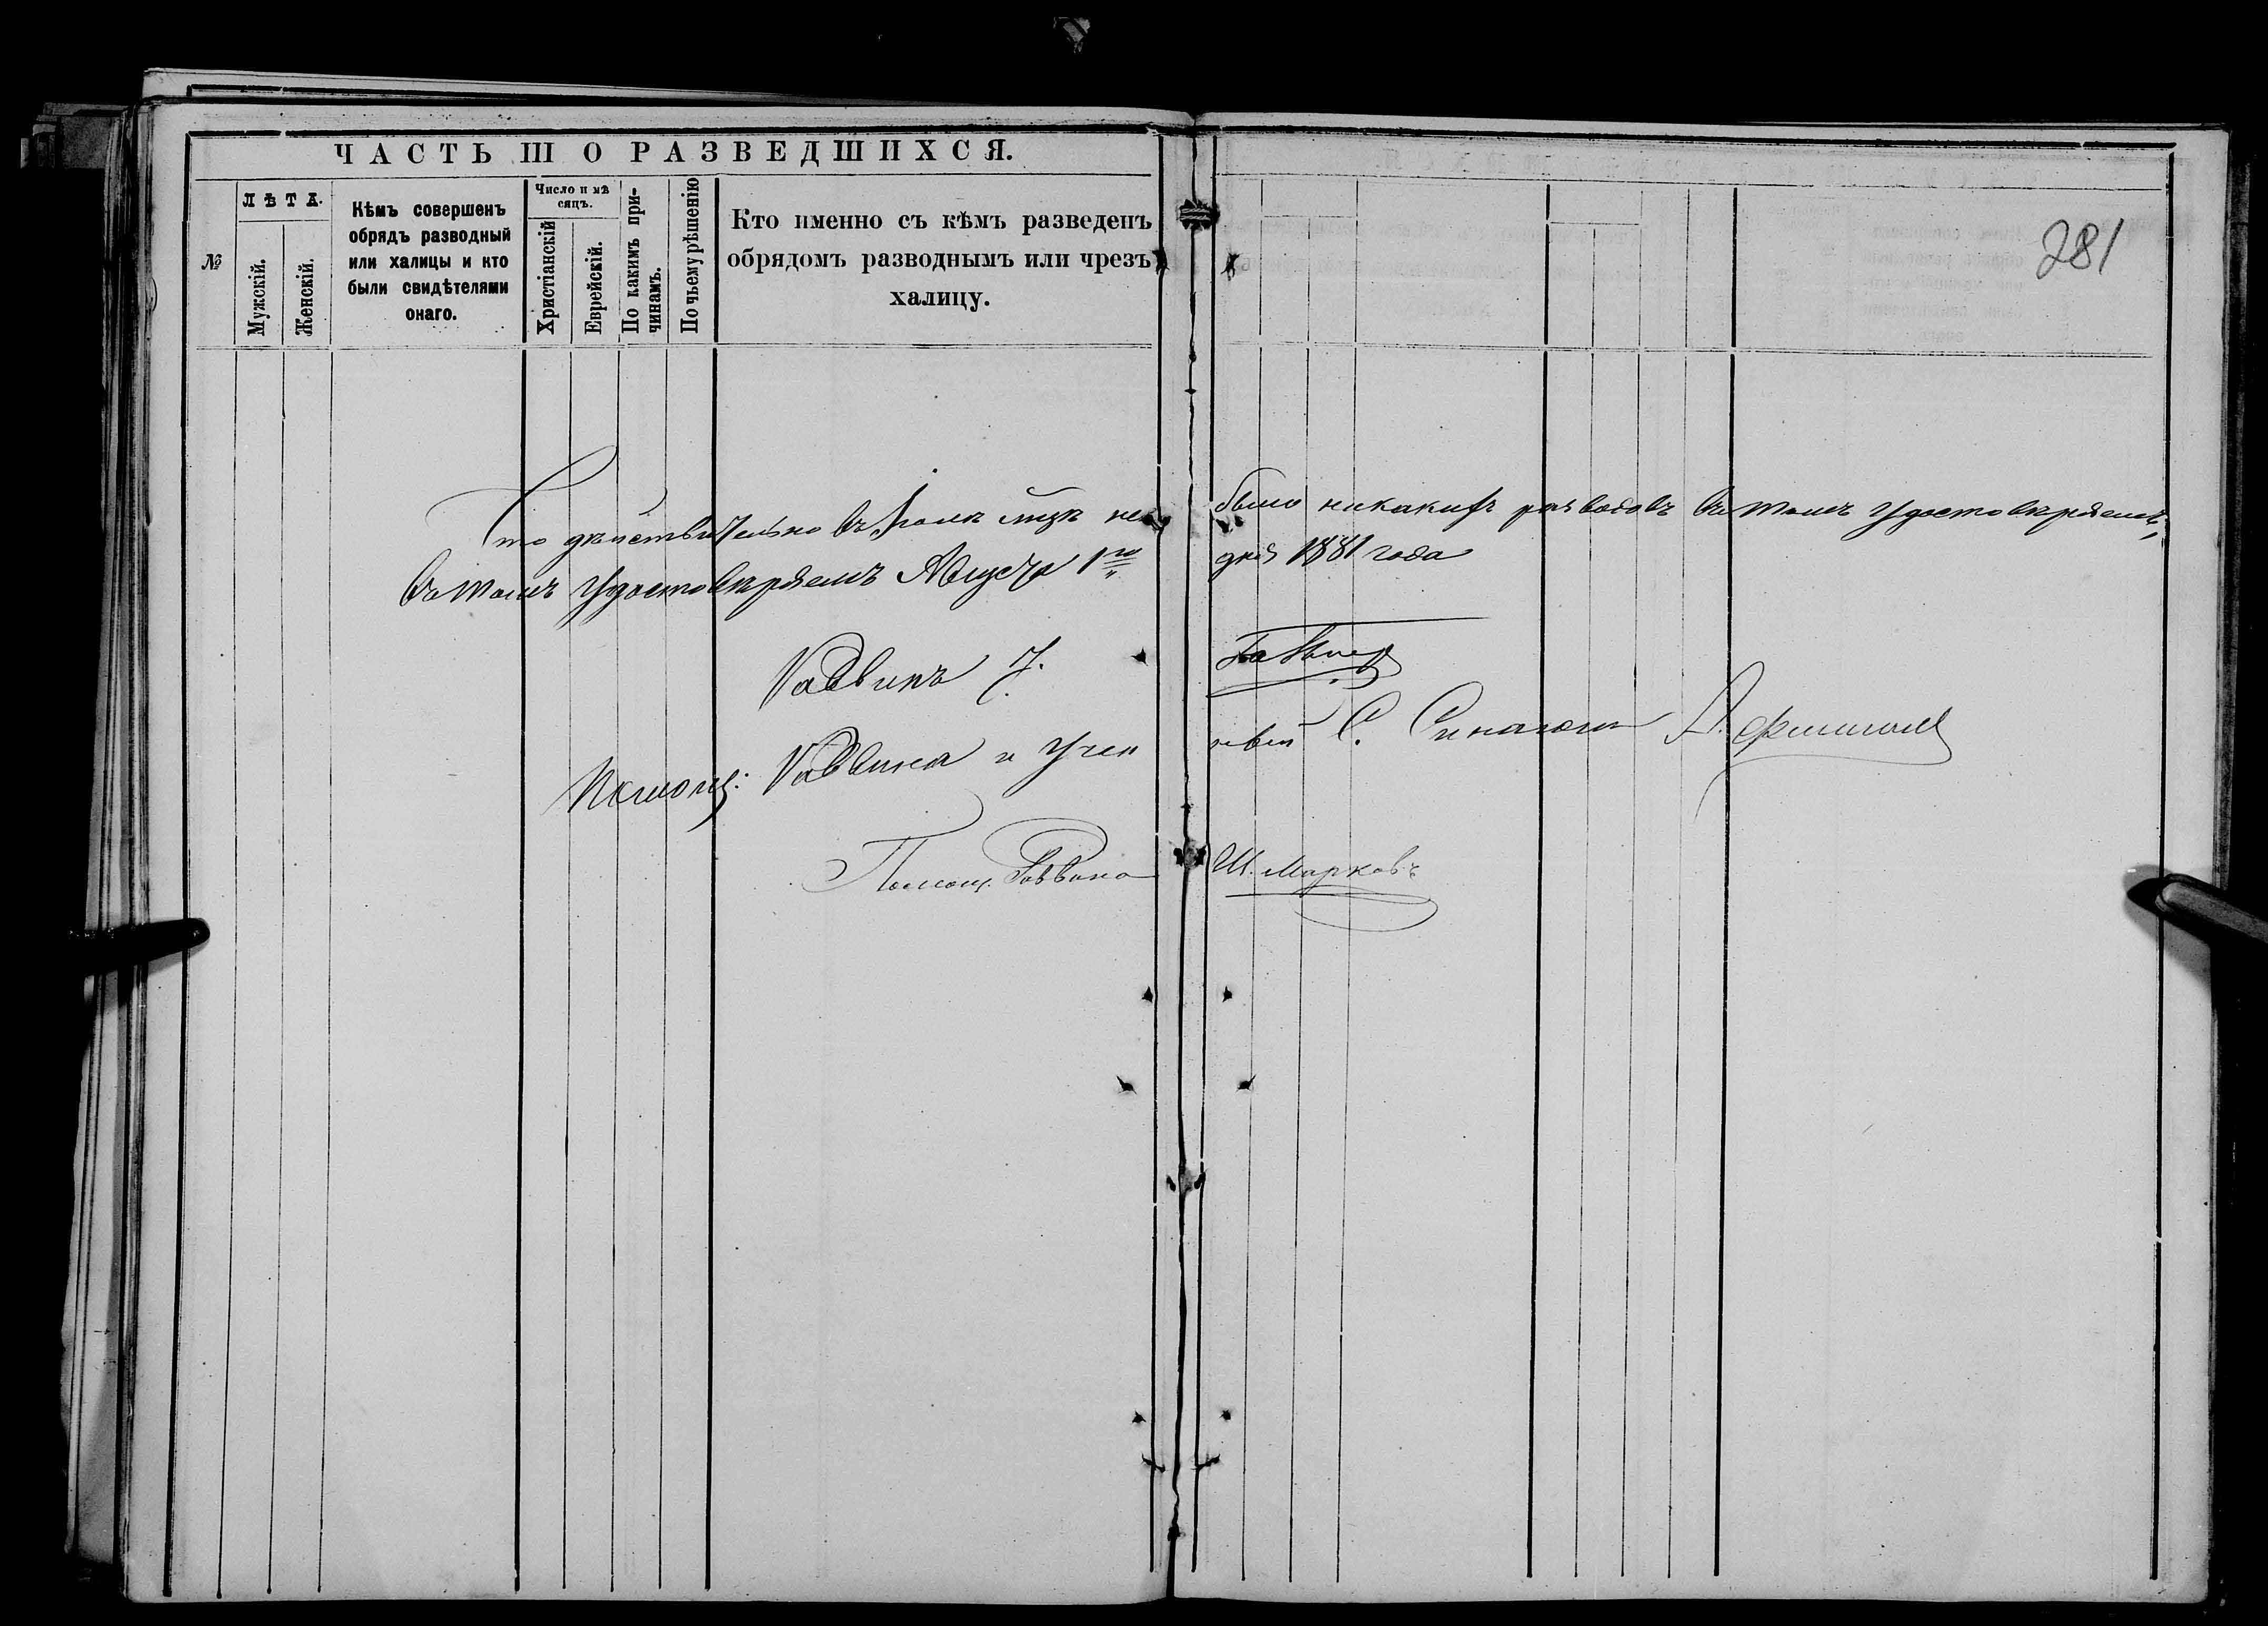 ЧАСТЬ III О РАЗВЕДШИХСЯ.
№
ЛѢТА.
Мужскій.
Женскій.
Кѣмъ совершенъ
обрядъ разводный
или халицы и кто
были свидѣтелями
онаго.
Число и мѣ
сяцъ.
Христіанскій
Еврейскій.
По какимъ при-
чинамъ.
По чьему рѣшенію
Кто именно съ кѣмъ разведенъ
обрядомъ разводнымъ или чрезъ
халицу.
281
Что дѣйствительно въ не было никакихъ разводовъ въ томъ удостовѣряемъ
въ томъ удостовѣряемъ Августа 1го дня 1881 года
Раввинъ
Помощ: Раввина и Учен С. Синагоги
Помощ. Раввина Ш. Марковъ